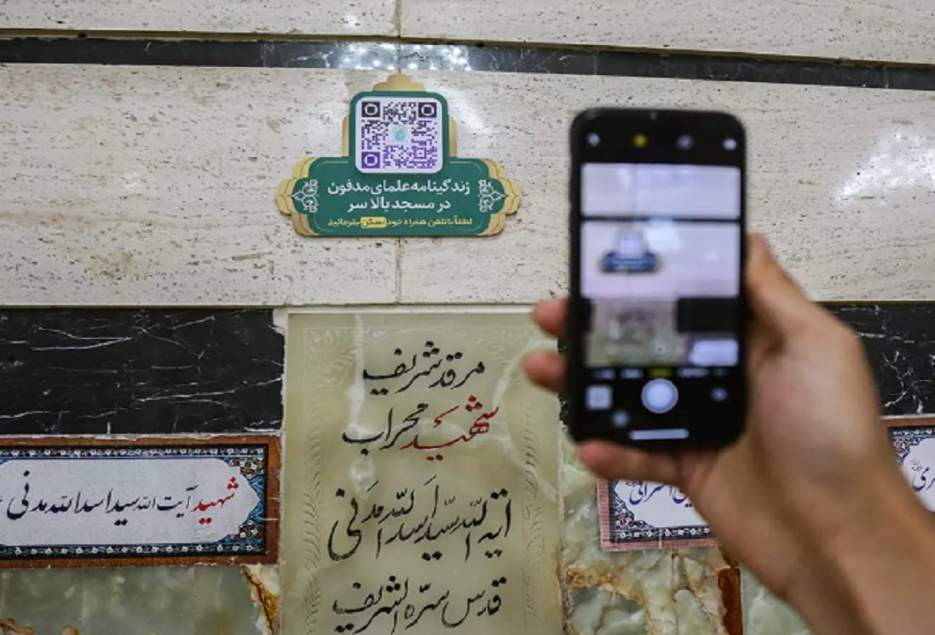 زندگینامه علمای مدفون
در مسجد بالاسر
لطفاً با تلفن همراه خود اسکن بفرمائید
مرقد شریف
شهید محراب
آیة الله سید اسدالله مدنی
قدس سرّه الشریف
شهید آیت الله سید اسدالله مدنی